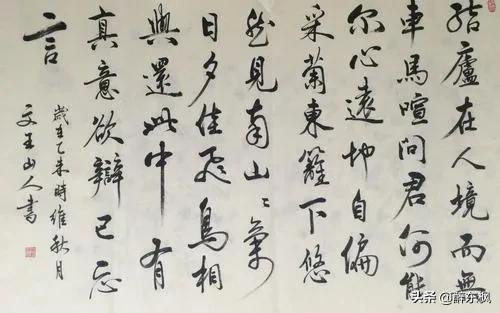 結廬在人境而無
車馬喧問君何能
尔心遠地自偏
采菊東籬下悠
然見南山〻氣
日夕佳飛鳥相
與還此中有
真意欲辯已忘
言
歲在乙未時維秋月
文王山人書
头条 @薛东枫